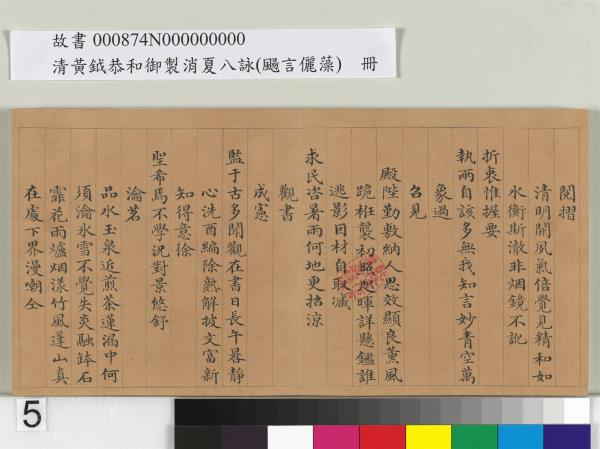 故書 000874N000000000
清黃鉞恭和御製消夏八詠(颺言儷藻) 冊
閱摺
清明開風氣倍覺見精和如
水衡斯澈非烟鏡不訛
折衷惟握要
執兩自該多無我知言妙青空萬
象過
召見
殿陛勤敷納人思效顯良薰風
跪祍襲初照 暉詳懸鑑誰
逃影因材自取臧
求民咨暑雨何地更招涼
觀書
成憲
監于古多聞觀在書日長午晷靜
心洗酉編除熟解披文富新
知得意徐
聖希馬不學況對景悠舒
瀹茗
品水玉泉近煎茶蓮漏中何
須瀹冰雪不覺失炎融缽石
霏花雨爐烟漾竹風蓬山真
在處下界漫嘲仝
5